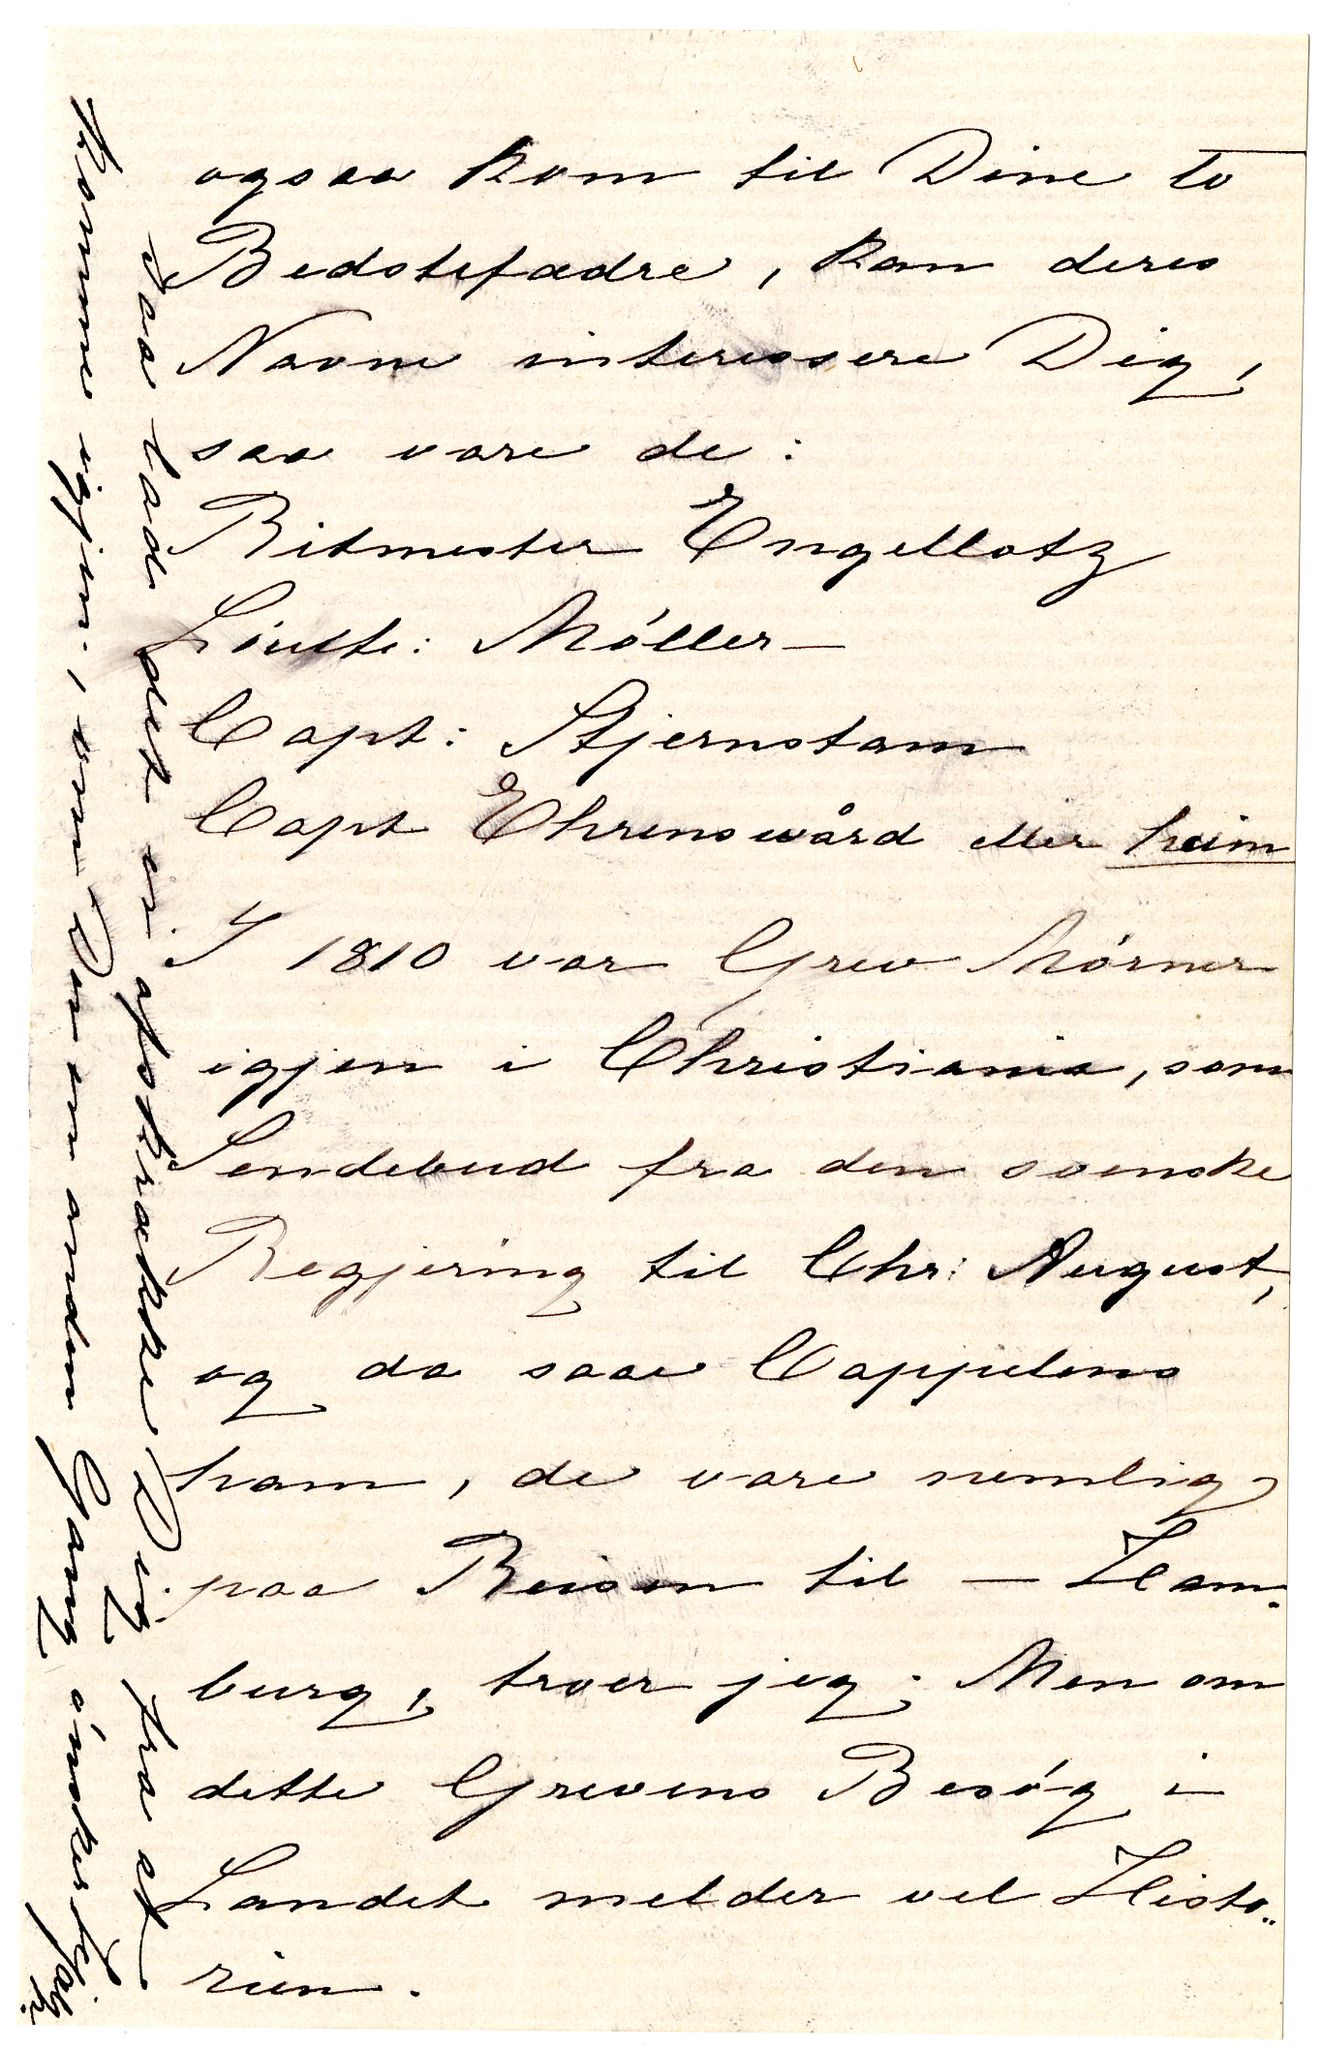 ogsaa kom til Dine to
Bedstefædre, kan deres
Navne interessere Dig,
saa vare de:
Ritmester Engellotz
Møller —
Capt: Stjernstam
Capt Ehrenswård eller heim
I 1810 var Grev Mörner
igjen i Christiania, som
Sendebud fra den svenske
Regjering til Chr: August,
og da saae Cappelens
ham, de vare nemlig
paa Reisen til — Ham-
burg, troer jeg. Men om
dette Grevens Besög i
Landet melder vel Histo-
rien.
saa lad det ei afskrække Dig fra at
komme igjen, om Du en anden Gang ónsker